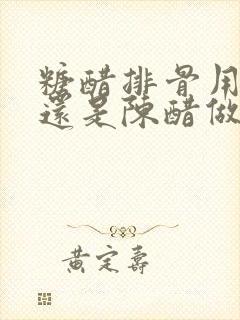 糖醋排骨用
還是陳醋做
黃定壽